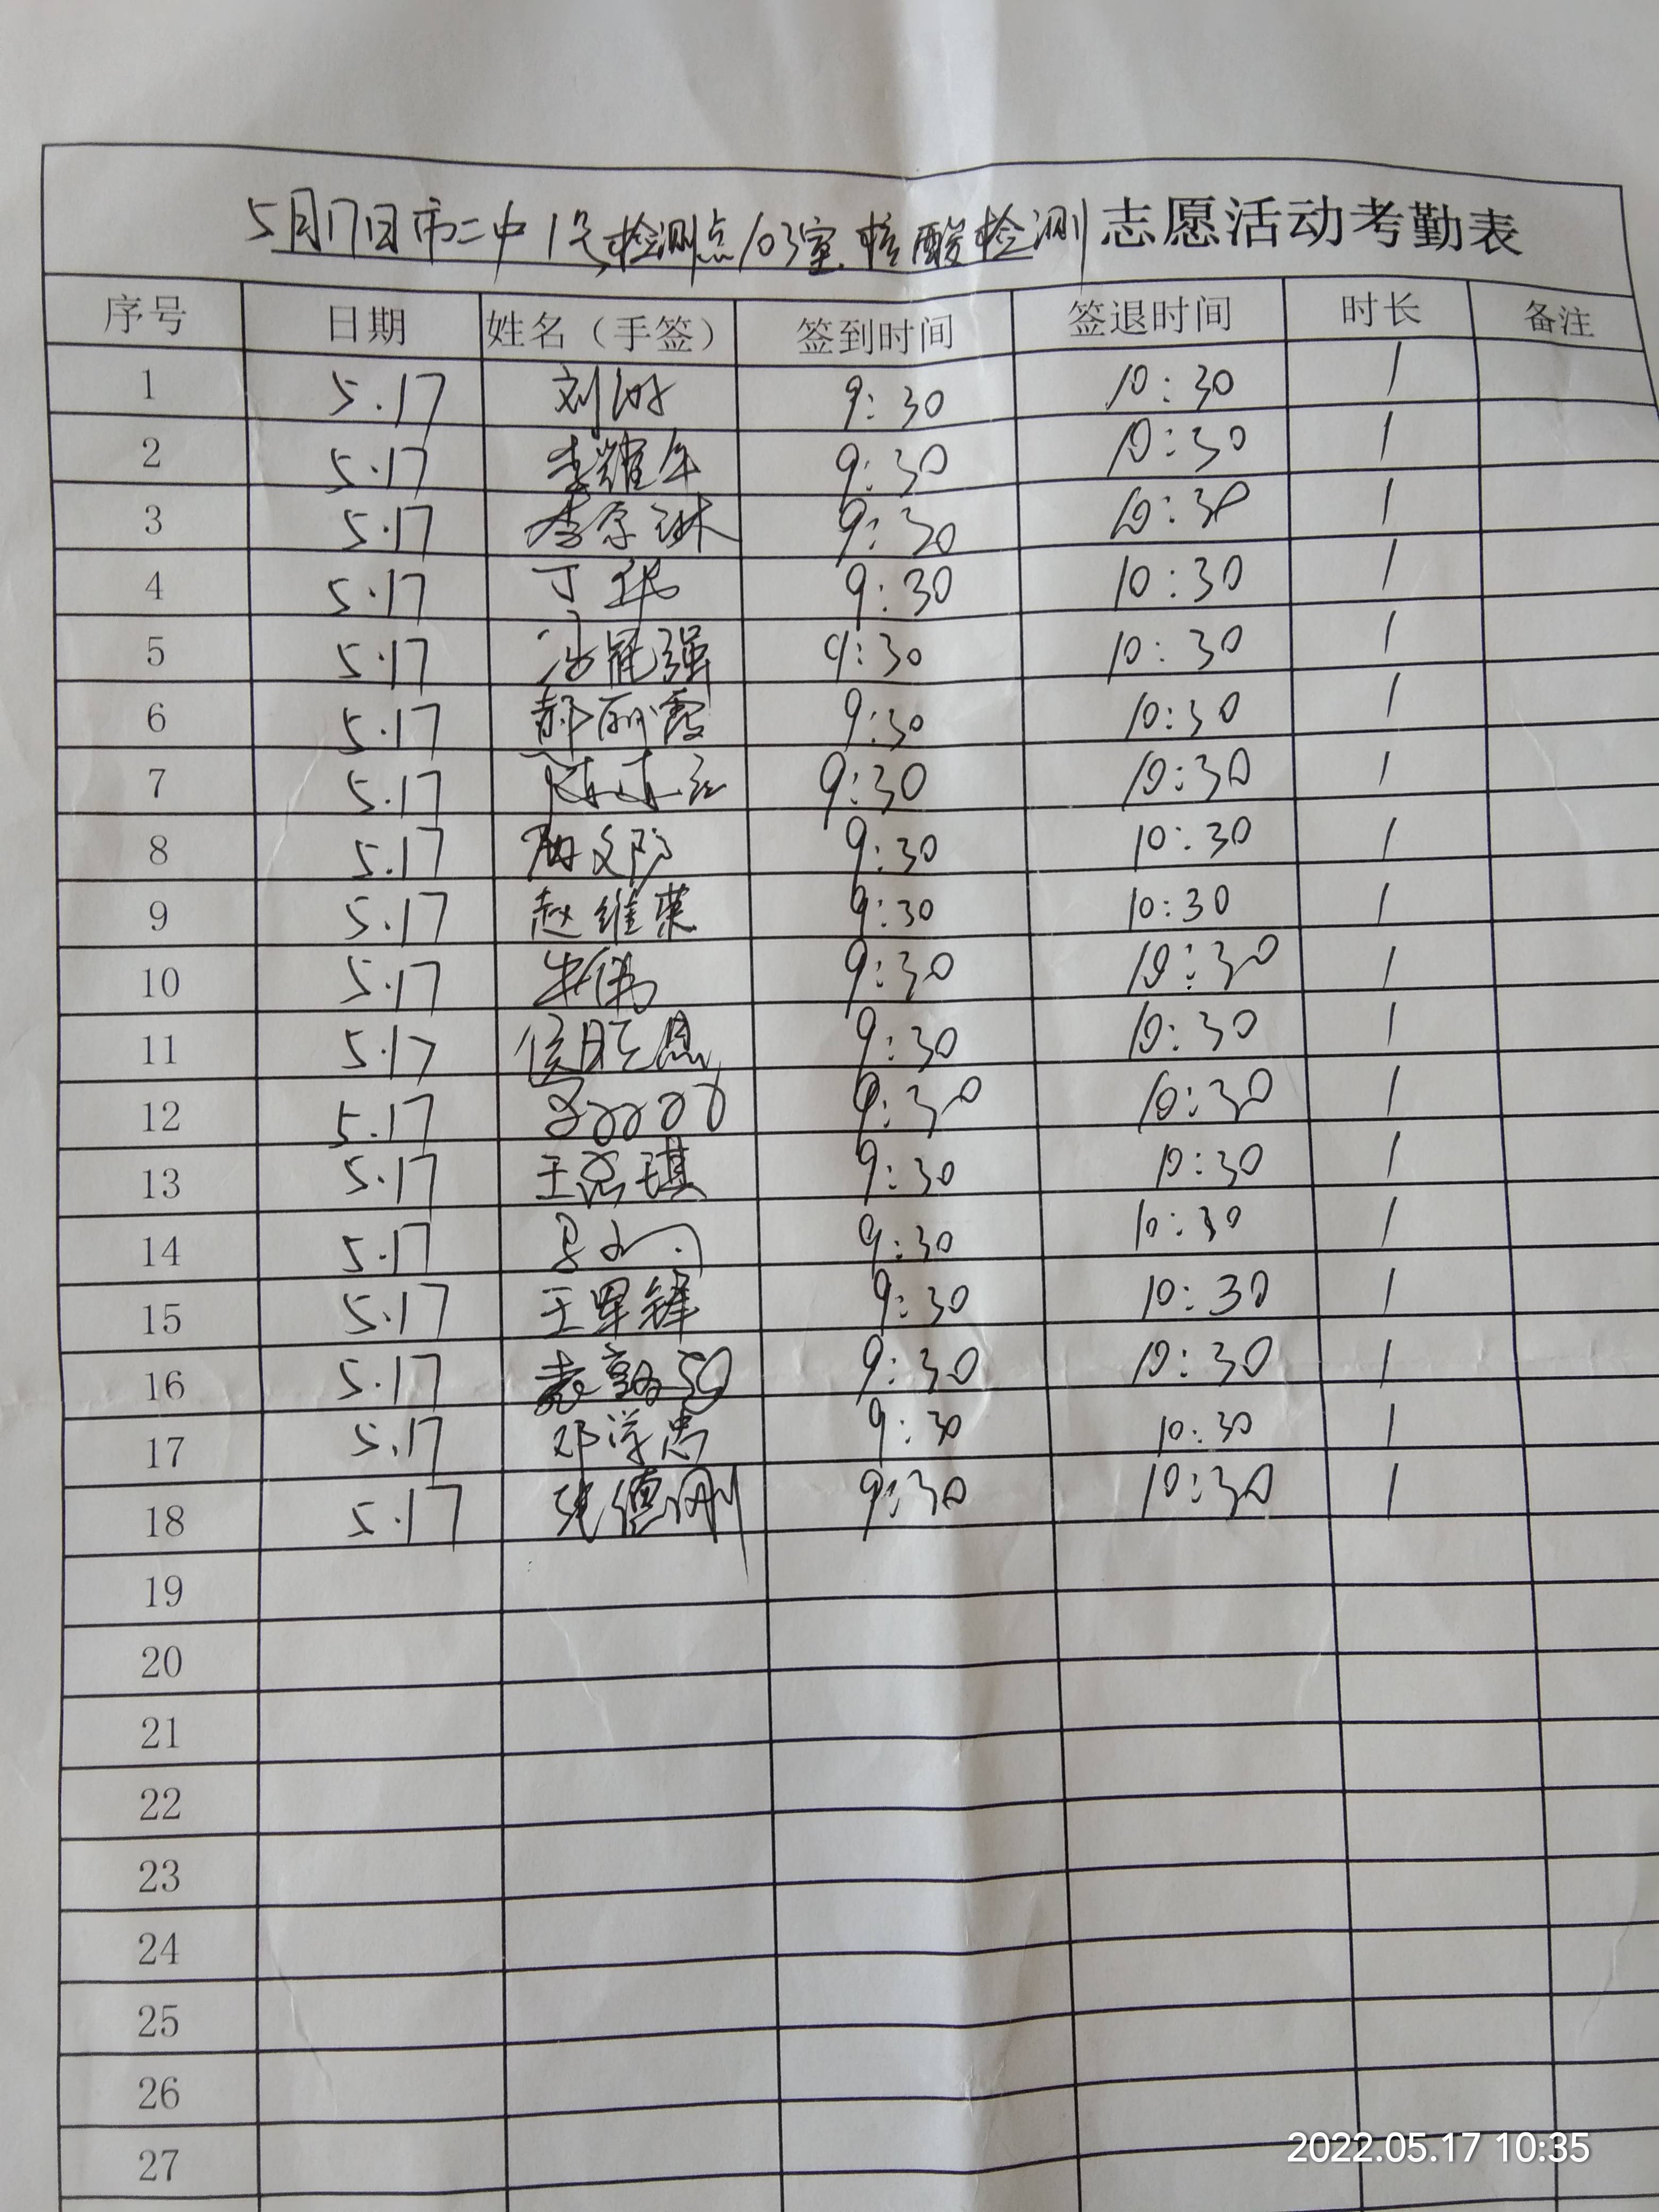 5月17日市二中1号检测点103室核酸检测志愿活动考勤表
序号 日期 姓名（手签） 签到时间 签退时间 时长 备注
1 5.17 刘 9:30 10:30 1
2 5.17 李耀年 9:30 10:30 1
3 5.17 李 琳 9:30 10:30 1
4 5.17 丁 9:30 10:30 1
5 5.17 强 9:30 10:30 1
6 5.17 郝丽霞 9:30 10:30 1
7 5.17 9:30 10:30 1
8 5.17 9:30 10:30 1
9 5.17 赵维荣 9:30 10:30 1
10 5.17 朱伟 9:30 10:30 1
11 5.17 9:30 10:30 1
12 5.17 9:30 10:30 1
13 5.17 王 琪 9:30 10:30 1
14 5.17 9:30 10:30 1
15 5.17 王军锋 9:30 10:30 1
16 5.17 9:30 10:30 1
17 5.17 邓学忠 9:30 10:30 1
18 5.17 张德刚 9:30 10:30 1
19
20
21
22
23
24
25
26
27
2022.05.17 10:35